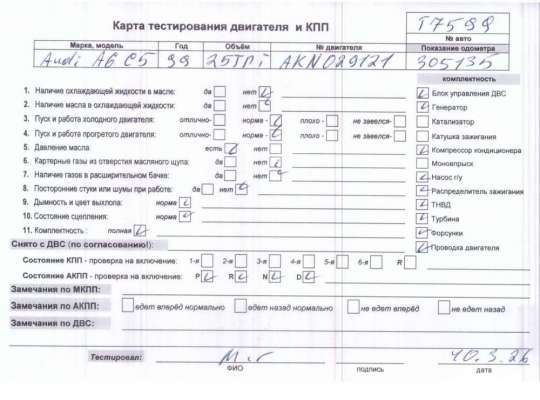 Карта тестирования двигателя и КПП
Т7599
№ авто
Марка, модель Год Объём № двигателя Показание одометра
Audi A6 C5 99 25TDi AKN029121 305135
комплектность
1. Наличие охлаждающей жидкости в масле: да нет
2. Наличие масла в охлаждающей жидкости: да нет
3. Пуск и работа холодного двигателя: отлично- норма - плохо - не завелся-
4. Пуск и работа прогретого двигателя: отлично- норма - плохо - не завелся-
5. Давление масла: есть нет
6. Картерные газы из отверстия масляного щупа: да нет
7. Наличие газов в расширительном бачке: да нет
8. Посторонние стуки или шумы при работе: да нет
9. Дымность и цвет выхлопа: норма
10. Состояние сцепления: норма
11. Комплектность : полная
Блок управления ДВС
Генератор
Катализатор
Катушка зажигания
Компрессор кондиционера
Моновпрыск
Насос г/у
Распределитель зажигания
ТНВД
Турбина
Форсунки
Проводка двигателя
Снято с ДВС (по согласованию!):
Состояние КПП - проверка на включение: 1-я 2-я 3-я 4-я 5-я 6-я R
Состояние АКПП - проверка на включение: P R N D
Замечания по МКПП:
Замечания по АКПП: едет вперёд нормально едет назад нормально не едет вперёд не едет назад
Замечания по ДВС:
Тестировал: 10.3.26
ФИО подпись дата